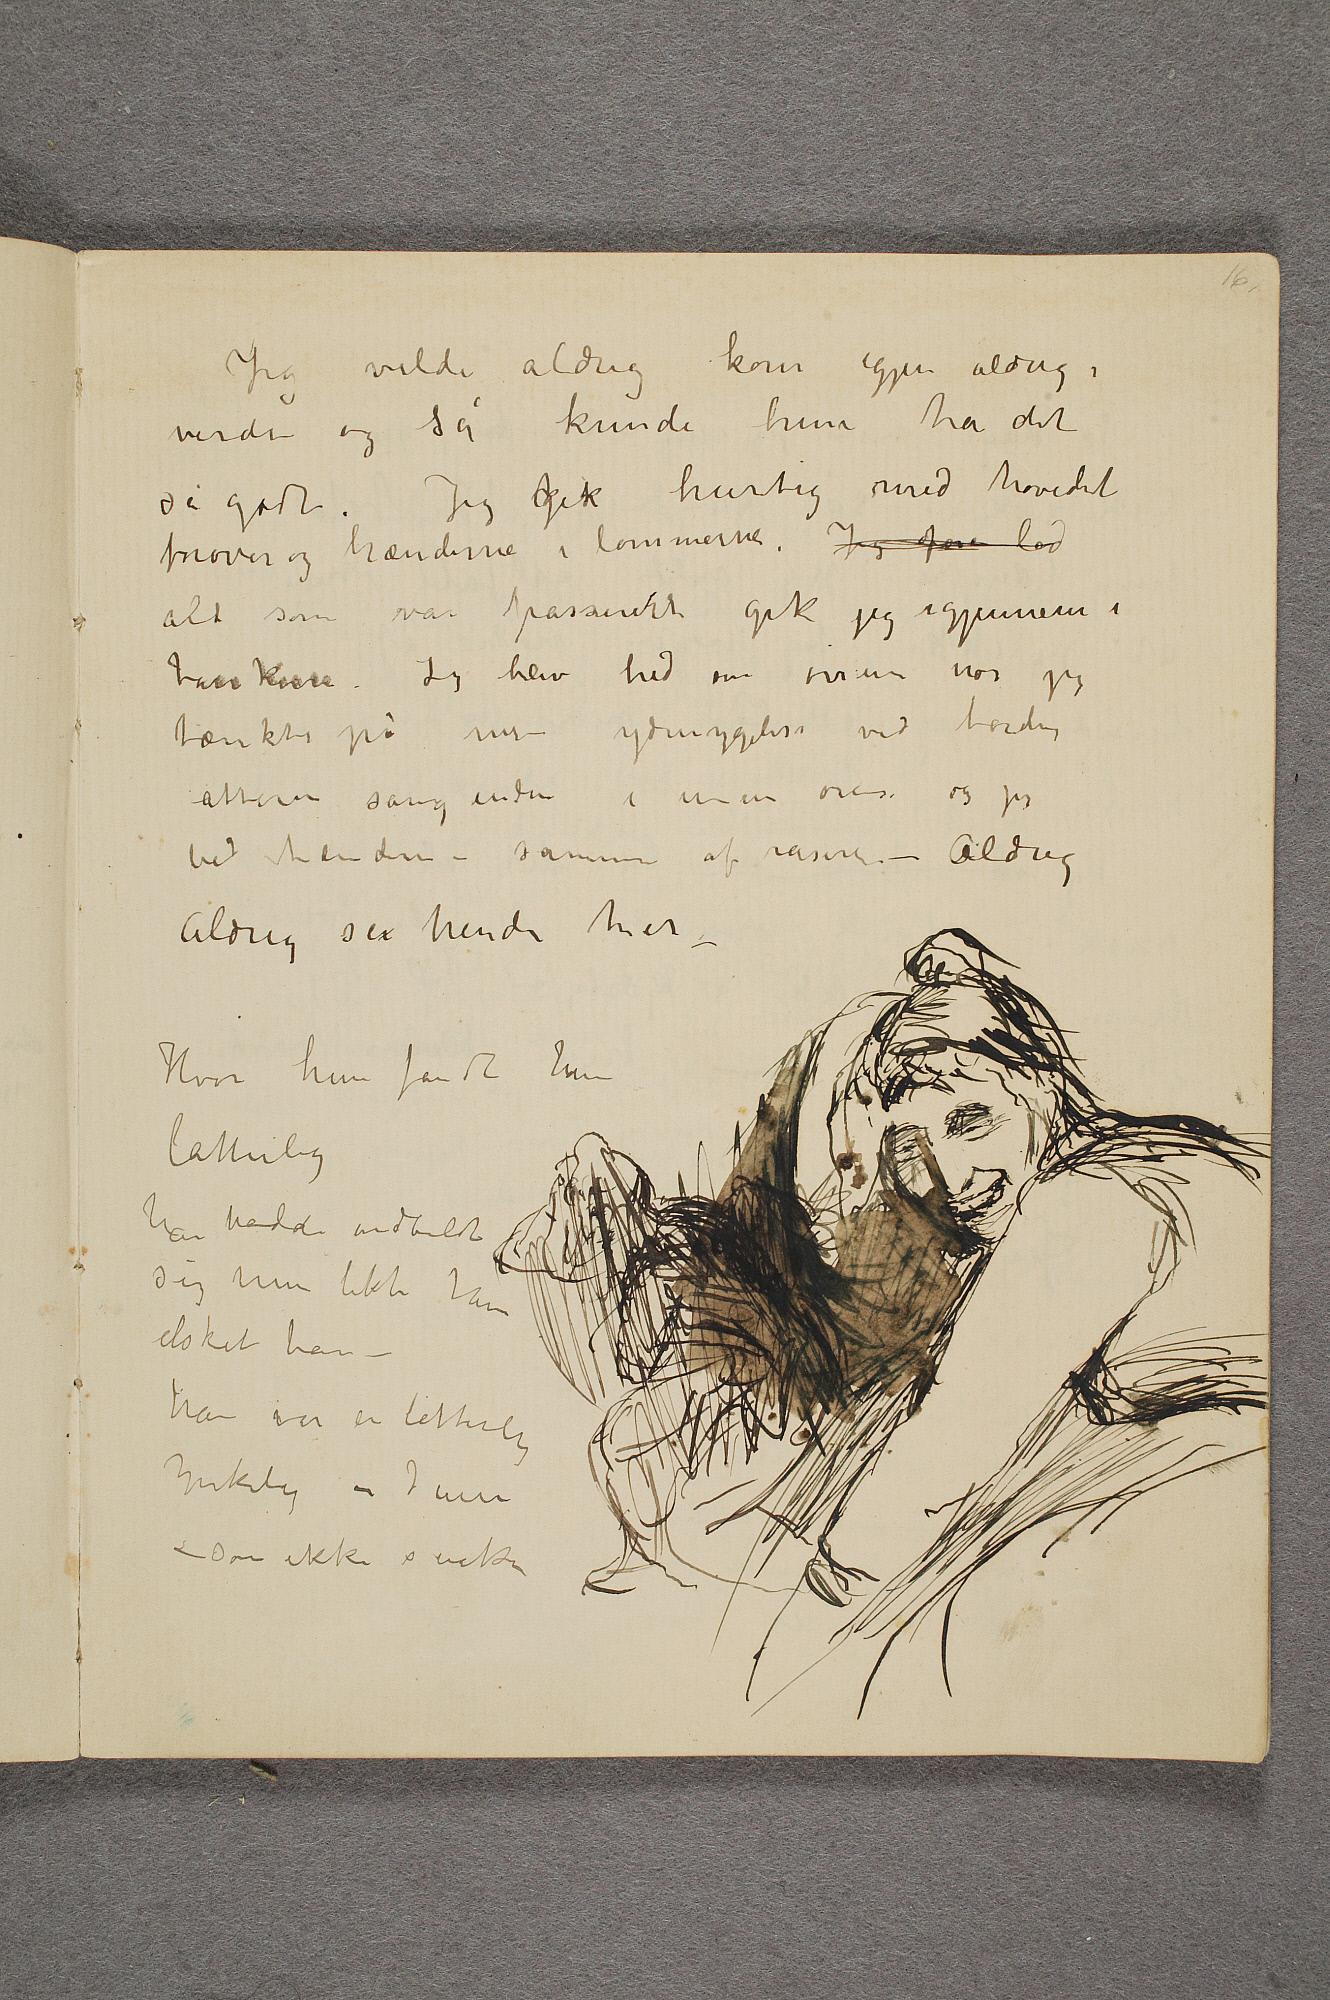 16.
Jeg vilde aldrig kom igjen aldrig i
verden og så kunde hun ha det
så godt. Jeg gik hurtig med hovedet
forover og hænderne i lommerne. Jeg for lod
alt som var passeret gik jeg igjennem i
tankene. Jeg blev hed om ørene når jeg
tænkte på min ydmygelse ved
sang inden i mine øren og jeg
bed tænderne sammen af raseri – Aldrig
Aldrig se hende mer –
Hvor hun fandt ham
latterlig
han hadde indbildt
sig hun likte ham
elsket ham –
han var en latterlig
ynkelig
som ikke